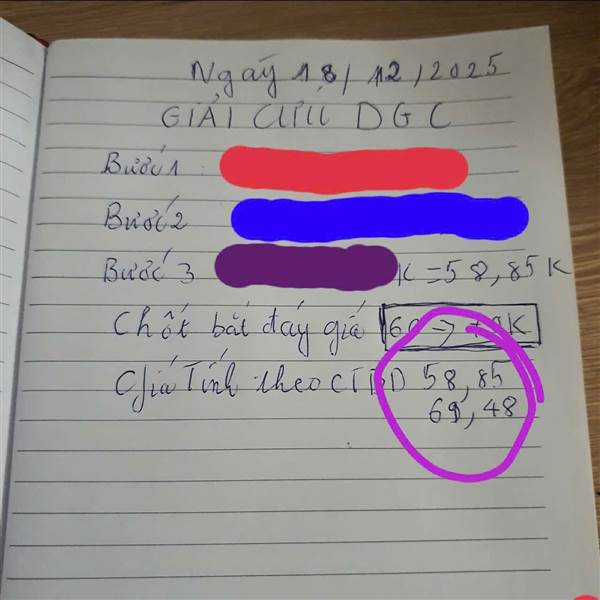 Ngáy 18/12/2025
GIẢI CỨU DGC
Bước 1
Bước 2
Bước 3 K = 58,85 K
Chốt bắt đáy giá 60 → K
Giá Tính theo CTBD 58,85
69,48